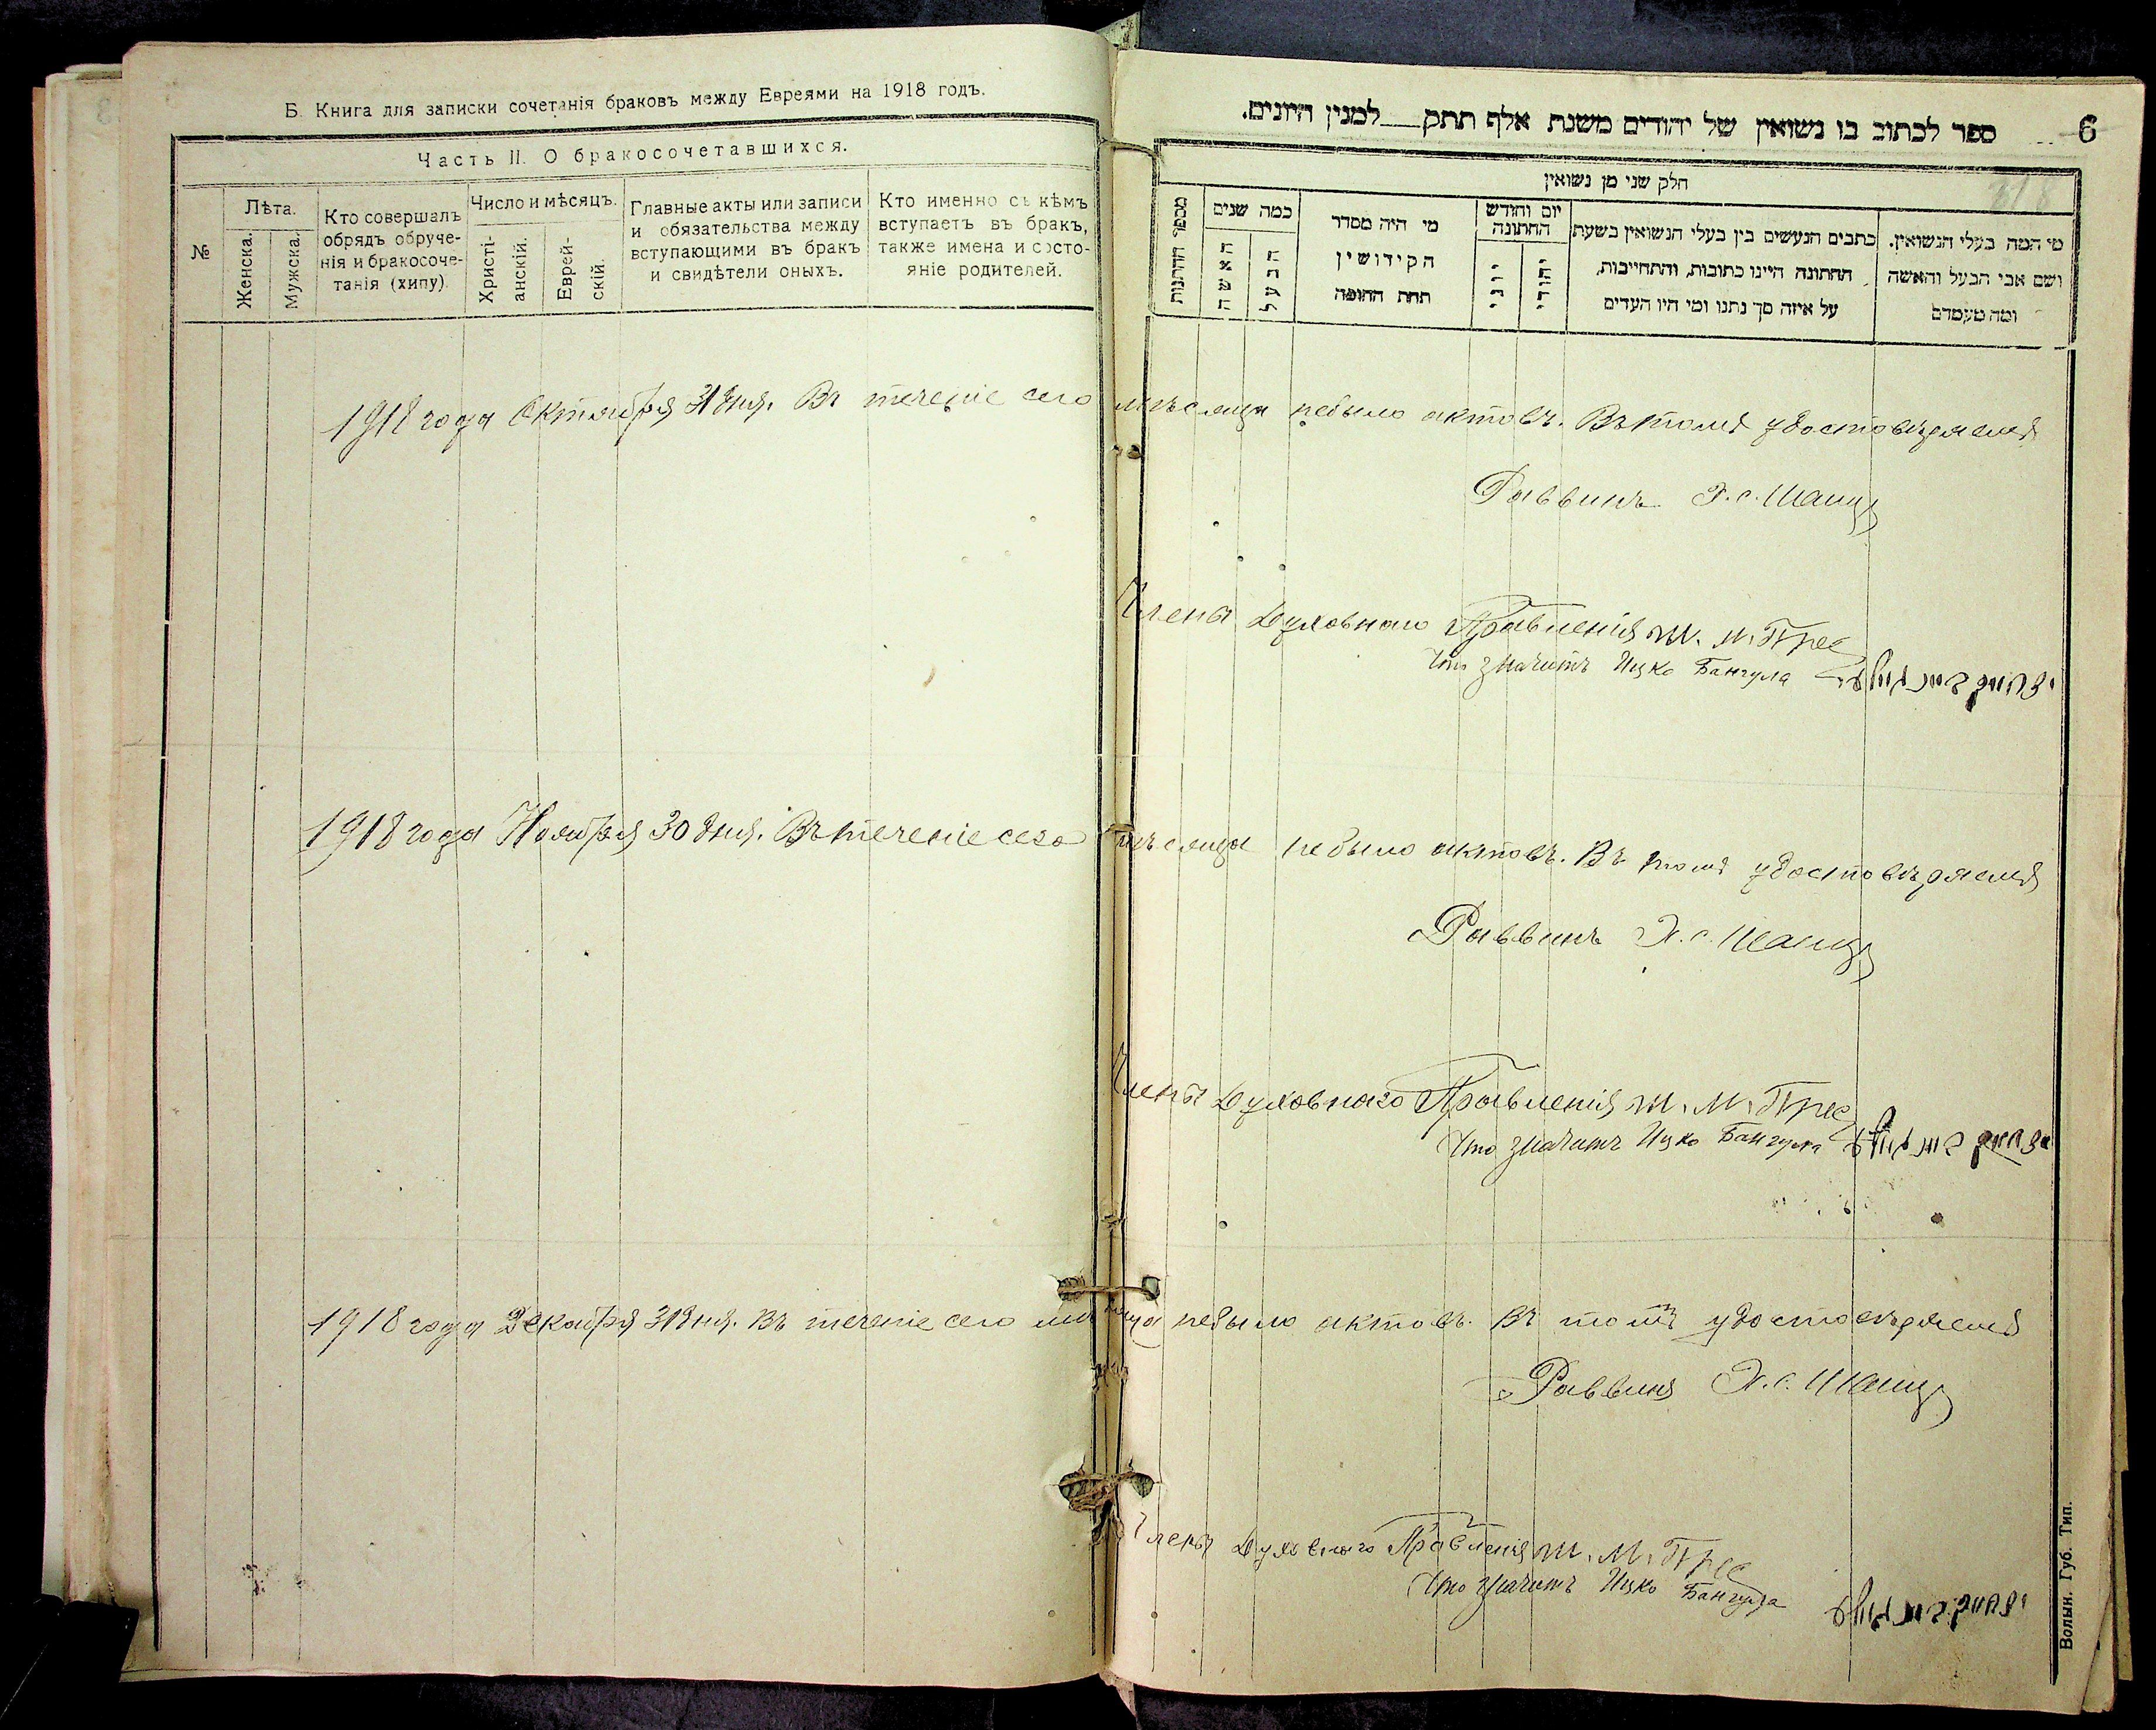 Б. Книга для записки сочетанія браковъ между Евреями на 1918 годъ.
Часть II. О бракосочетавшихся.
№
Лѣта.
Женска.
Мужска.
Кто совершалъ
обрядъ обруче-
нія и бракосоче-
танія (хипу).
Число и мѣсяцъ.
Христі-
анскій.
Еврей-
скій.
Главные акты или записи
и обязательства между
вступающими въ бракъ
и свидѣтели оныхъ.
Кто именно съ кѣмъ
вступаетъ въ бракъ,
также имена и состо-
яніе родителей.
ספר לכתוב בו נשואין של יהודים משנת אלף תתק___למנין היונים.
6
318
חלק שני מן נשואין
מספר החתנות
כמה שנים
האשה
הבעל
מי היה מסדר
הקידושין
תחת החופה
יום וחודש
החתונה
יוני
יהודי
כתבים הנעשים בין בעלי הנשואין בשעת
החתונה היינו כתובות, והתחייבות,
על איזה סך נתנו ומי היו העדים
מי המה בעלי הנשואין.
ושם אבי הבעל והאשה
ומה מעמדם
1918 года Октября 31 дня. Въ теченіе сего мѣсяца небыло актовъ. Въ томъ удостовѣряемъ
Раввинъ
Члены Духовнаго Правленія М. М. Прес
Что значитъ Ицко Бангула
1918 года Ноября 30 дня. Въ теченіе сего мѣсяца небыло актовъ. Въ томъ удостовѣряемъ
Раввинъ
Члены Духовнаго Правленія М. М. Прес
Что значитъ Ицко Бангула
1918 года Декабря 31 дня. Въ теченіе сего мѣсяца небыло актовъ. Въ томъ удостовѣряемъ
Раввинъ
Члены Духовнаго Правленія М. М. Прес
Что значитъ Ицко Бангула
Волын. Губ. Тип.